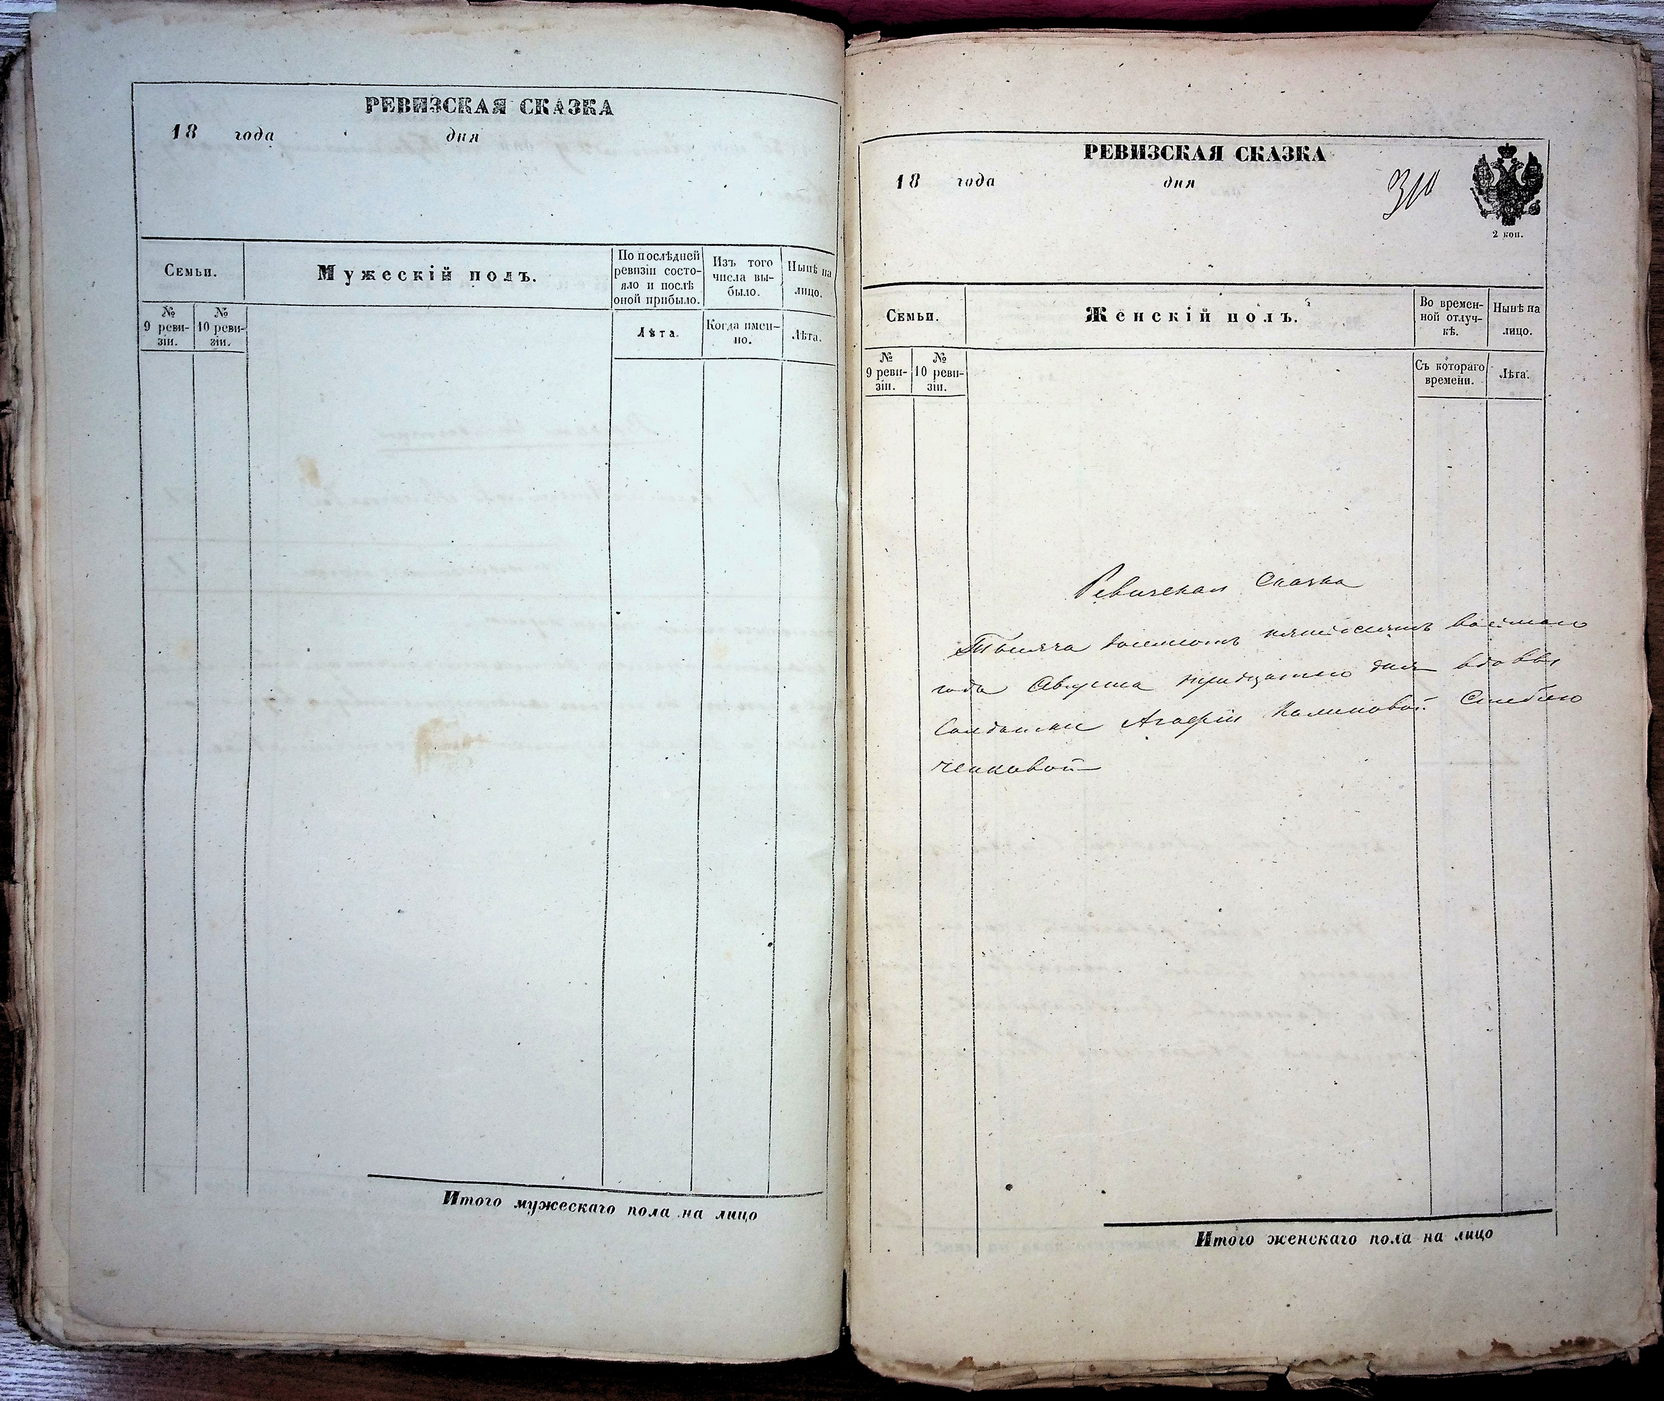 РЕВИЗСКАЯ СКАЗКА
18 года дня
Семьи.
Мужескій полъ.
По послѣдней
ревизіи состо-
яло и послѣ
оной прибыло.
Изъ того
числа вы-
было.
Нынѣ на
лицо.
№
9 реви-
зіи.
№
10 реви-
зіи.
Лѣта.
Когда имен-
но.
Лѣта.
Итого мужескаго пола на лицо
РЕВИЗСКАЯ СКАЗКА
18 года дня
310
2 коп.
Семьи.
Женскій полъ.
Во времен-
ной отлуч-
кѣ.
Нынѣ на
лицо.
№
9 реви-
зіи.
№
10 реви-
зіи.
Съ котораго
времени.
Лѣта.
Ревизская Сказка
Тысяча восемсотъ пятьдесятъ восьмаго
года Августа тридцатаго дня вдовы
Солдатки Агафіи Калиновой
Итого женскаго пола на лицо